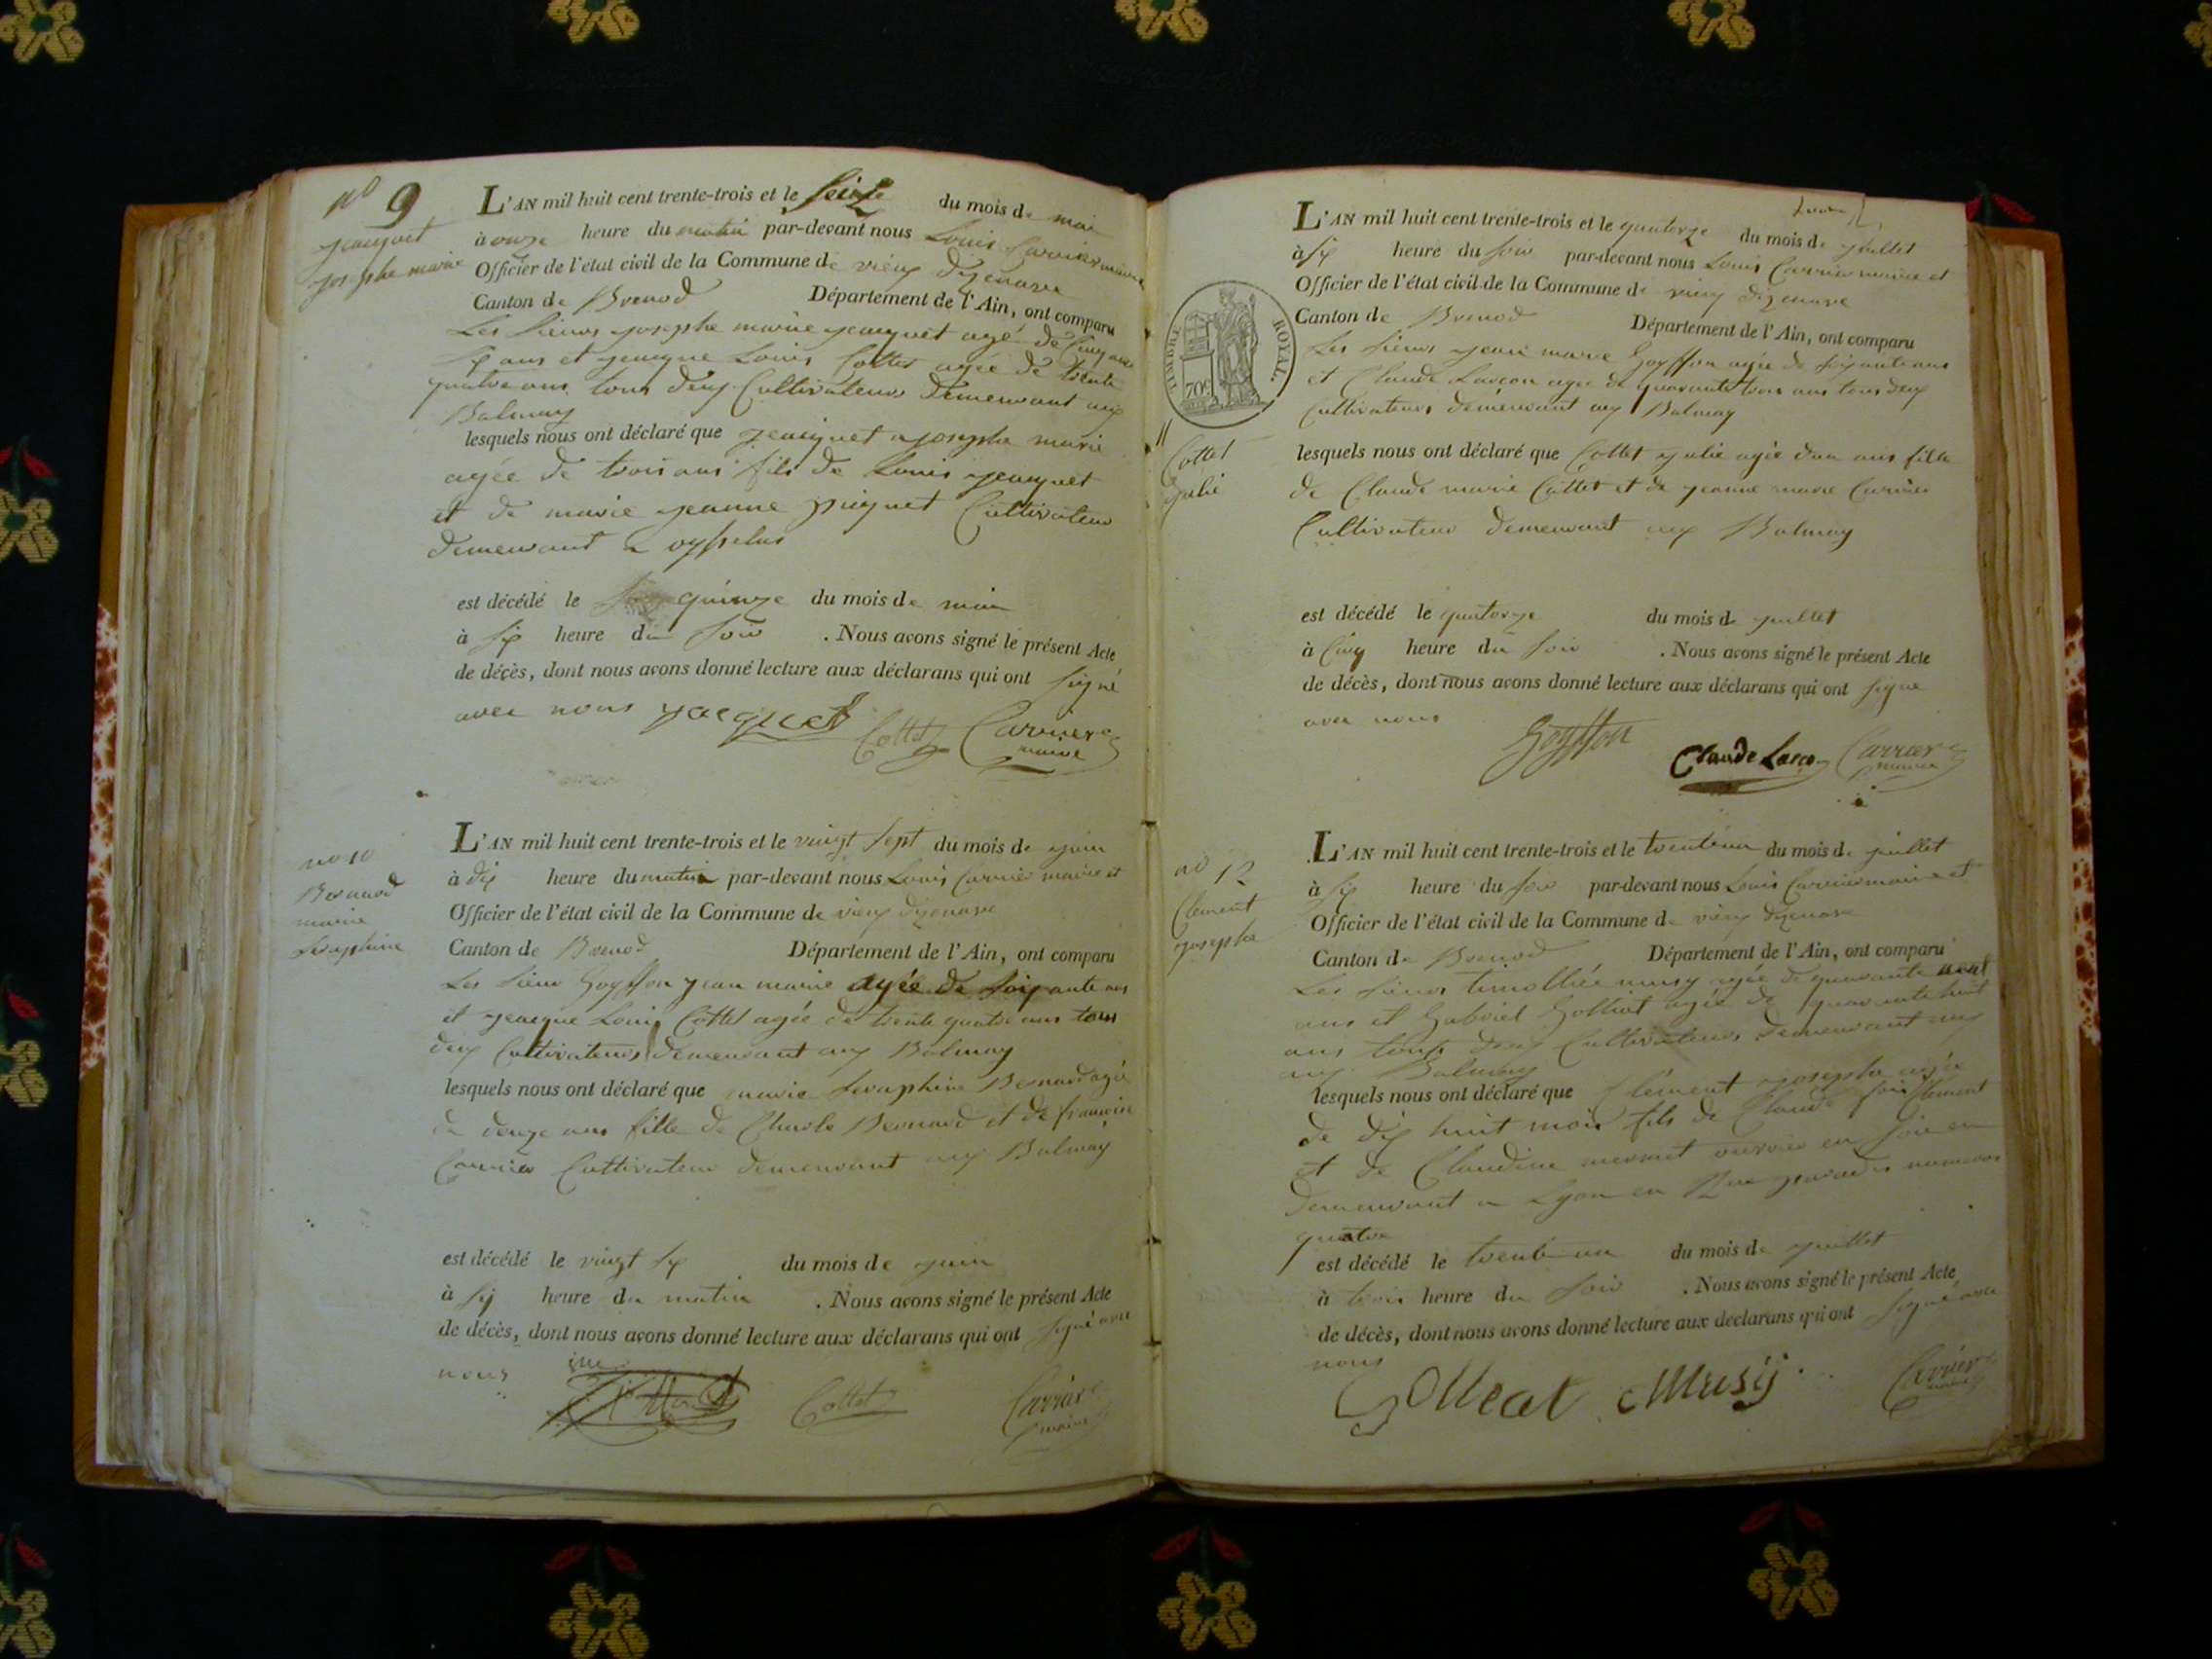 no 9
jacquet
josephe marie
L'AN mil huit cent trente-trois et le seize du mois de mai
à onze heure du matin par-devant nous Louis Carrier maire
Officier de l'état civil de la Commune de vieux dizenave
Canton de Brenod Département de l'Ain, ont comparu
Les sieurs josephe marie jacquet agé de
six ans et jacque Louis Cottet agée de trente
quatre ans tous deux Cultivateurs demeurant aux
Balmay
lesquels nous ont déclaré que jacquet josephe marie
agée de trois ans fils de Louis jacquet
et de marie jeanne Cultivateur
demeurant a oysselas
est décédé le quinze du mois de mai
à six heure du soir . Nous avons signé le présent Acte
de décès, dont nous avons donné lecture aux déclarans qui ont signé
avec nous jacquet Cottet Carrier
maire
no 10
Bernard
marie
séraphine
L'AN mil huit cent trente-trois et le vingt sept du mois de juin
à dix heure du matin par-devant nous Louis Carrier maire et
Officier de l'état civil de la Commune de vieux dizenave
Canton de Brenod Département de l'Ain, ont comparu
Les sieur Goyffon jean marie agée de soixante ans
et jacque Louis Cottet agée de trente quatre ans tous
deux Cultivateurs demeurant aux Balmay
lesquels nous ont déclaré que marie séraphine Bernard agée
de douze ans fille de Charle Bernard et de françoise
Carrier Cultivateur demeurant aux Balmay
est décédé le vingt six du mois de juin
à six heure du matin . Nous avons signé le présent Acte
de décès, dont nous avons donné lecture aux déclarans qui ont signé avec
nous Cottet Carrier
maire
TIMBRE ROYAL.
70c
11
Cottet
julie
L'AN mil huit cent trente-trois et le quatorze du mois de juillet
à six heure du soir par-devant nous Louis Carrier maire et
Officier de l'état civil de la Commune de vieux dizenave
Canton de Brenod Département de l'Ain, ont comparu
Les sieurs jean marie Goyffon agée de soixante ans
et Claude Larçon agée de quarante trois ans tous deux
Cultivateurs demeurant aux Balmay
lesquels nous ont déclaré que Cottet julie agée d'un ans fille
de Claude marie Cottet et de jeanne marie Carrier
Cultivateur demeurant aux Balmay
est décédé le quatorze du mois de juillet
à cinq heure du soir . Nous avons signé le présent Acte
de décès, dont nous avons donné lecture aux déclarans qui ont signé
avec nous
Goyffon Claude Larçon Carrier
maire
no 12
Clement
josephe
L'AN mil huit cent trente-trois et le trente un du mois de juillet
à six heure du soir par-devant nous Louis Carrier maire et
Officier de l'état civil de la Commune de vieux dizenave
Canton de Brenod Département de l'Ain, ont comparu
Les sieurs timothée musy agée de quarante neuf
ans et Gabriel Golliat agée de quarante huit
ans tous deux Cultivateurs demeurant aux
Balmay
lesquels nous ont déclaré que Clément josephe agée
de dix huit mois fils de Claude Clement
et de Claudine mermet ouvrier en soie
demeurant a Lyon en Rue numeros
quatre
est décédé le trente un du mois de juillet
à trois heure du soir . Nous avons signé le présent Acte
de décès, dont nous avons donné lecture aux déclarans qui ont signé avec
nous
Golleat Musy Carrier
maire